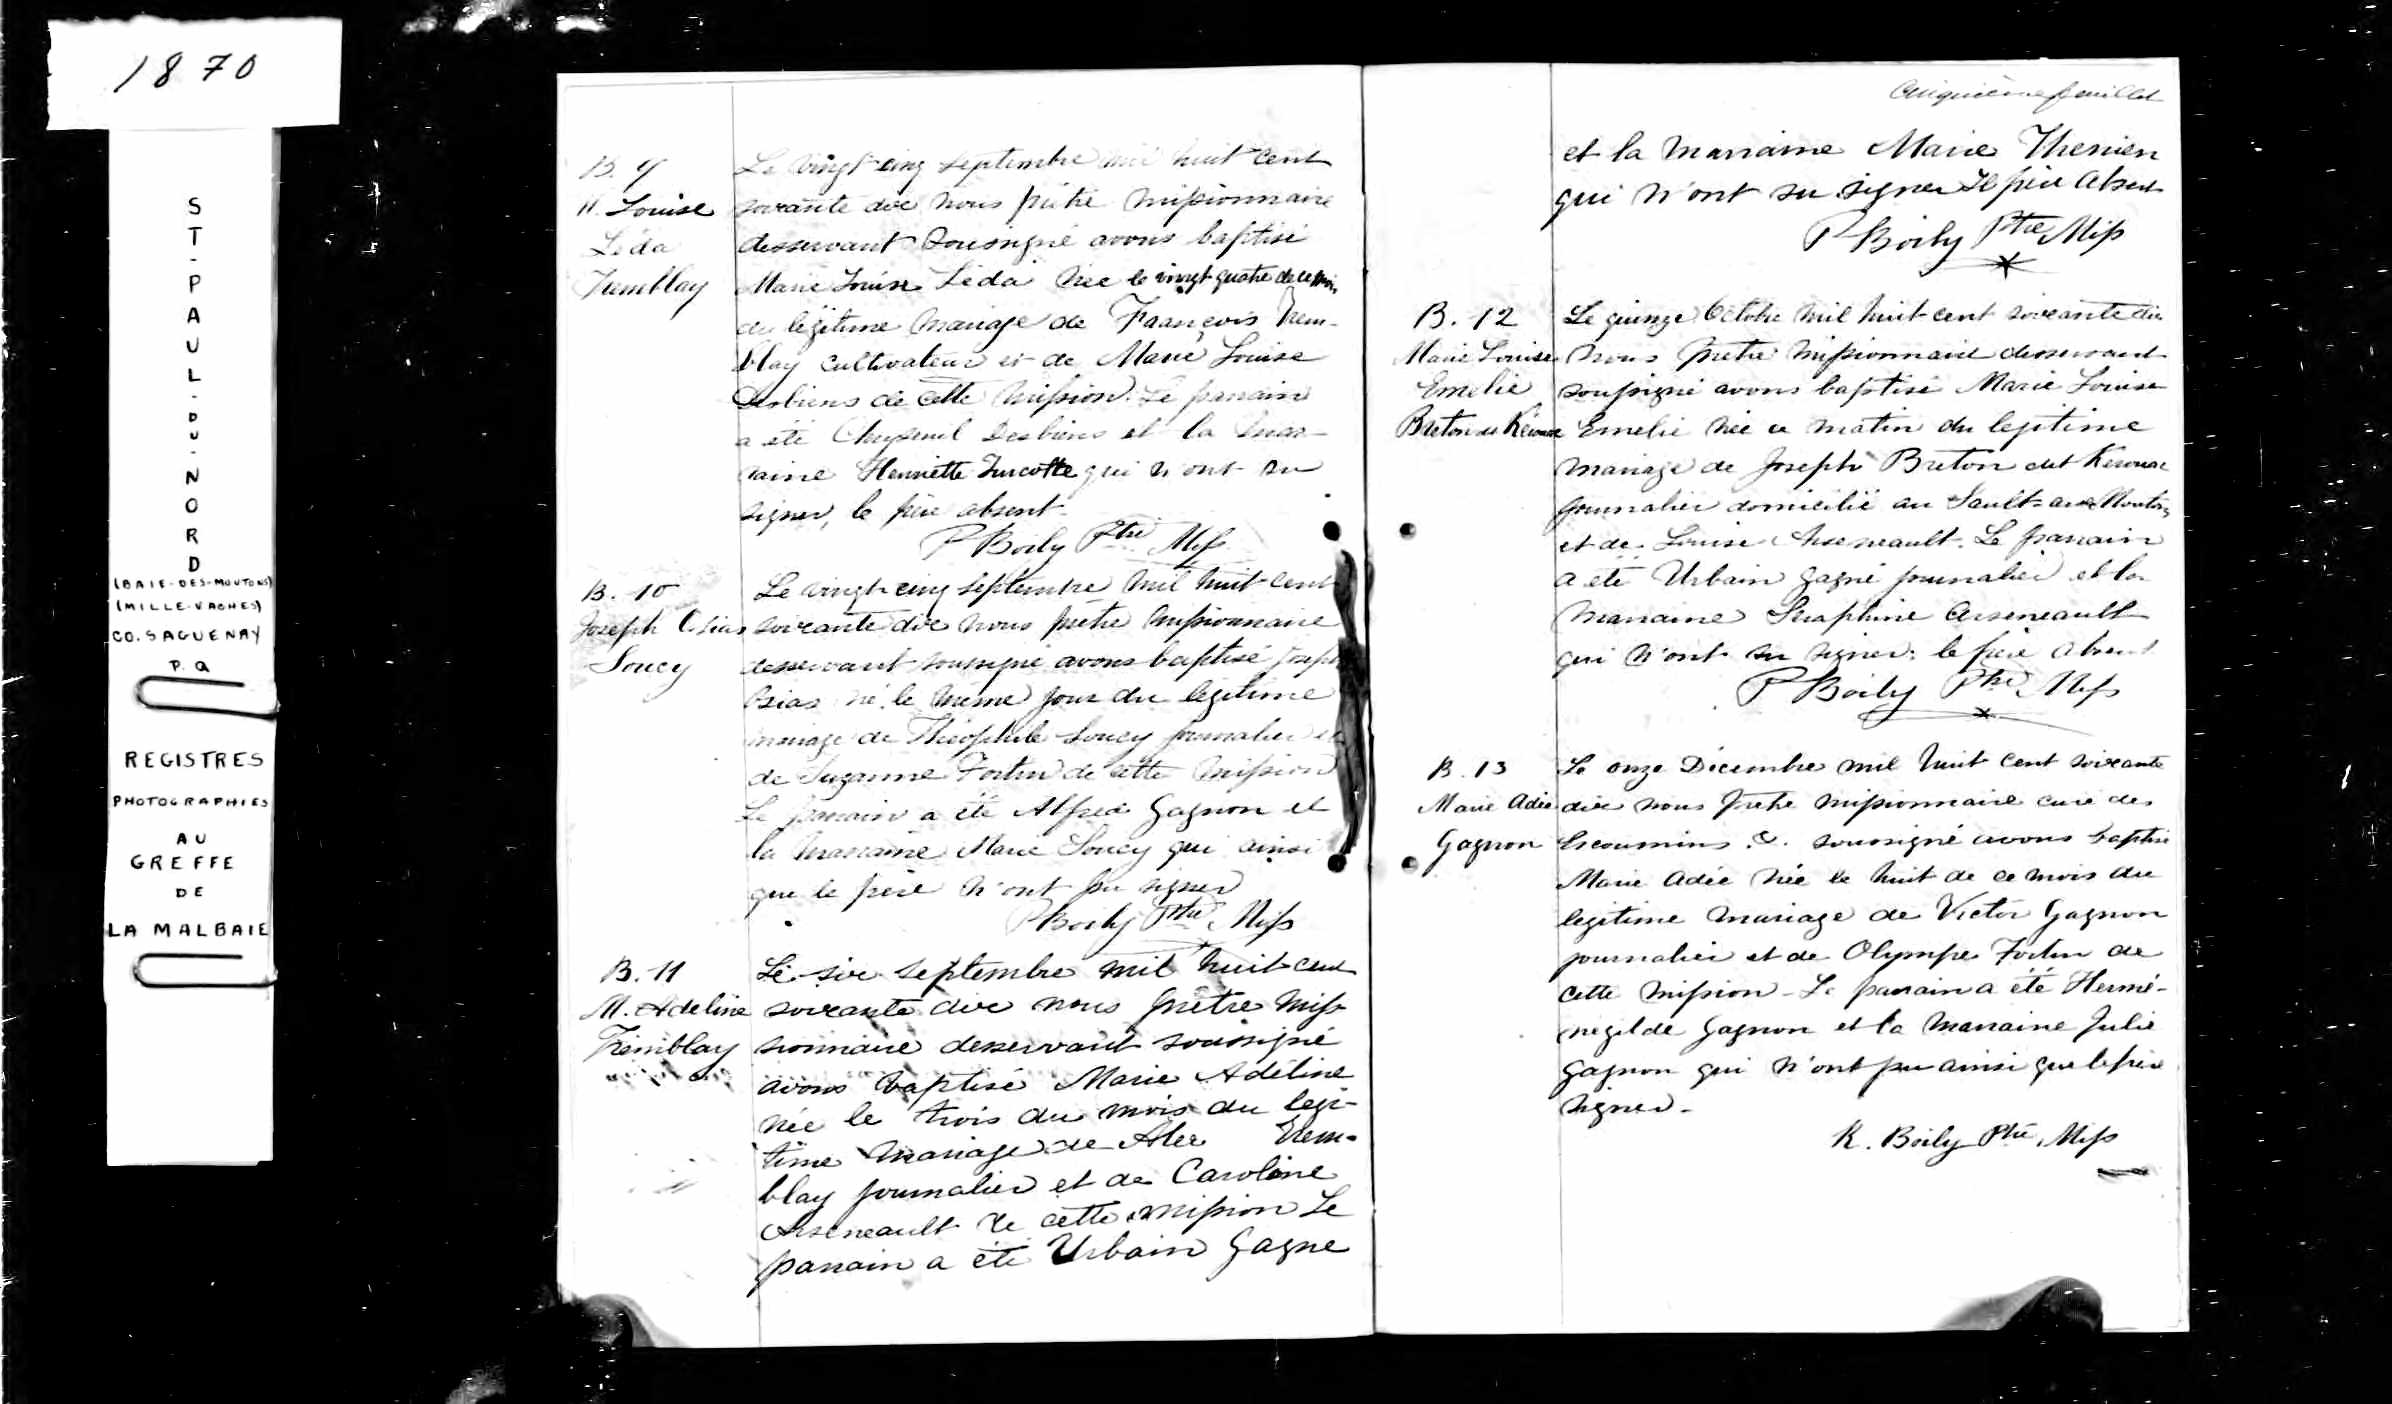 1870
ST-PAUL-DU-NORD
(BAIE-DES-MOUTONS)
(MILLE-VACHES)
CO. SAGUENAY
P.Q
REGISTRES
PHOTOGRAPHIES
AU
GREFFE
DE
LA MALBAIE
B. 9
M. Louise
Léda
Tremblay
Le vingt cinq septembre mil huit cent
soixante dix nous prêtre missionnaire
desservant soussigné avons baptisé
Marie Louise Léda née le vingt quatre de ce mois
du légitime mariage de François Trem-
blay cultivateur et de Marie Louise
Desbiens de cette mission. Le parrain
a été Desbiens et la mar-
raine Henriette Turcotte qui n'ont su
signer, le père absent.
P Boily Ptre Miss
B. 10
Joseph Osias
Soucy
Le vingt-cinq septembre mil huit cent
soixante dix nous prêtre missionnaire
desservant soussigné avons baptisé Joseph
Osias né le même jour du légitime
mariage de Théophile Soucy journalier et
de Suzanne Fortin de cette mission
Le parrain a été Alfred Gagnon et
la marraine Marie Soucy qui ainsi
que le père n'ont pu signer
P Boily Ptre Miss
B. 11
M. Adeline
Tremblay
Le six septembre mil huit cent
soixante dix nous prêtre mis
sionnaire desservant soussigné
avons baptisé Marie Adeline
née le trois du mois du légi-
time mariage de Alex Trem-
blay journalier et de Caroline
Arseneault de cette mission Le
parrain a été Urbain Gagné
Cinquième feuillet
et la marraine Marie Therrien
qui n'ont su signer Le père absent
P Boily Ptre Miss
B. 12
Marie Louise
Emelie
Breton dit Kérouac
Le quinze Octobre mil huit cent soixante dix
nous prêtre missionnaire desservant
soussigné avons baptisé Marie Louise
Emelie née ce matin du legitime
mariage de Joseph Breton dit Kerouac
journalier domicilié au Sault-aux-Moutons
et de Louise Arseneault. Le parrain
a été Urbain Gagné journalier et la
marraine Seraphine Arseneault
qui n'ont su signer; le père absent
P Boily Ptre Miss
B. 13
Marie Adée
Gagnon
Le onze Décembre mil huit cent soixante
dix nous prêtre missionnaire curé des
Escoumins &. soussigné avons baptisé
Marie Adée née le huit de ce mois du
legitime mariage de Victor Gagnon
journalier et de Olympe Fortin de
cette mission - Le parrain a été Hermé-
negilde Gagnon et la marraine Julie
Gagnon qui n'ont pu ainsi que le père
signer.
K. Boily Ptre Miss